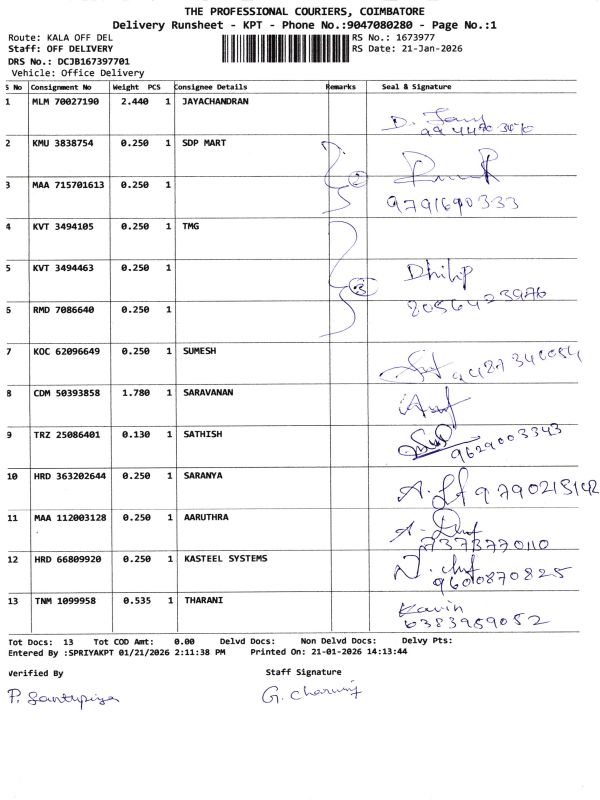 THE PROFESSIONAL COURIERS, COIMBATORE
Delivery Runsheet - KPT - Phone No.:9047080280 - Page No.:1
Route: KALA OFF DEL RS No.: 1673977
Staff: OFF DELIVERY RS Date: 21-Jan-2026
DRS No.: DCJB167397701
Vehicle: Office Delivery
S No Consignment No Weight PCS Consignee Details Remarks Seal & Signature
1 MLM 70027190 2.440 1 JAYACHANDRAN
2 KMU 3838754 0.250 1 SDP MART
3 MAA 715701613 0.250 1
2
9791690333
4 KVT 3494105 0.250 1 TMG
5 KVT 3494463 0.250 1 Dhilip
3
6 RMD 7086640 0.250 1
7 KOC 62096649 0.250 1 SUMESH
8 CDM 50393858 1.780 1 SARAVANAN
9 TRZ 25086401 0.130 1 SATHISH
9629003343
10 HRD 363202644 0.250 1 SARANYA
11 MAA 112003128 0.250 1 AARUTHRA
7373770110
12 HRD 66809920 0.250 1 KASTEEL SYSTEMS
9600870825
13 TNM 1099958 0.535 1 THARANI Kavin
6383959052
Tot Docs: 13 Tot COD Amt: 0.00 Delvd Docs: Non Delvd Docs: Delvy Pts:
Entered By :SPRIYAKPT 01/21/2026 2:11:38 PM Printed On: 21-01-2026 14:13:44
Verified By Staff Signature